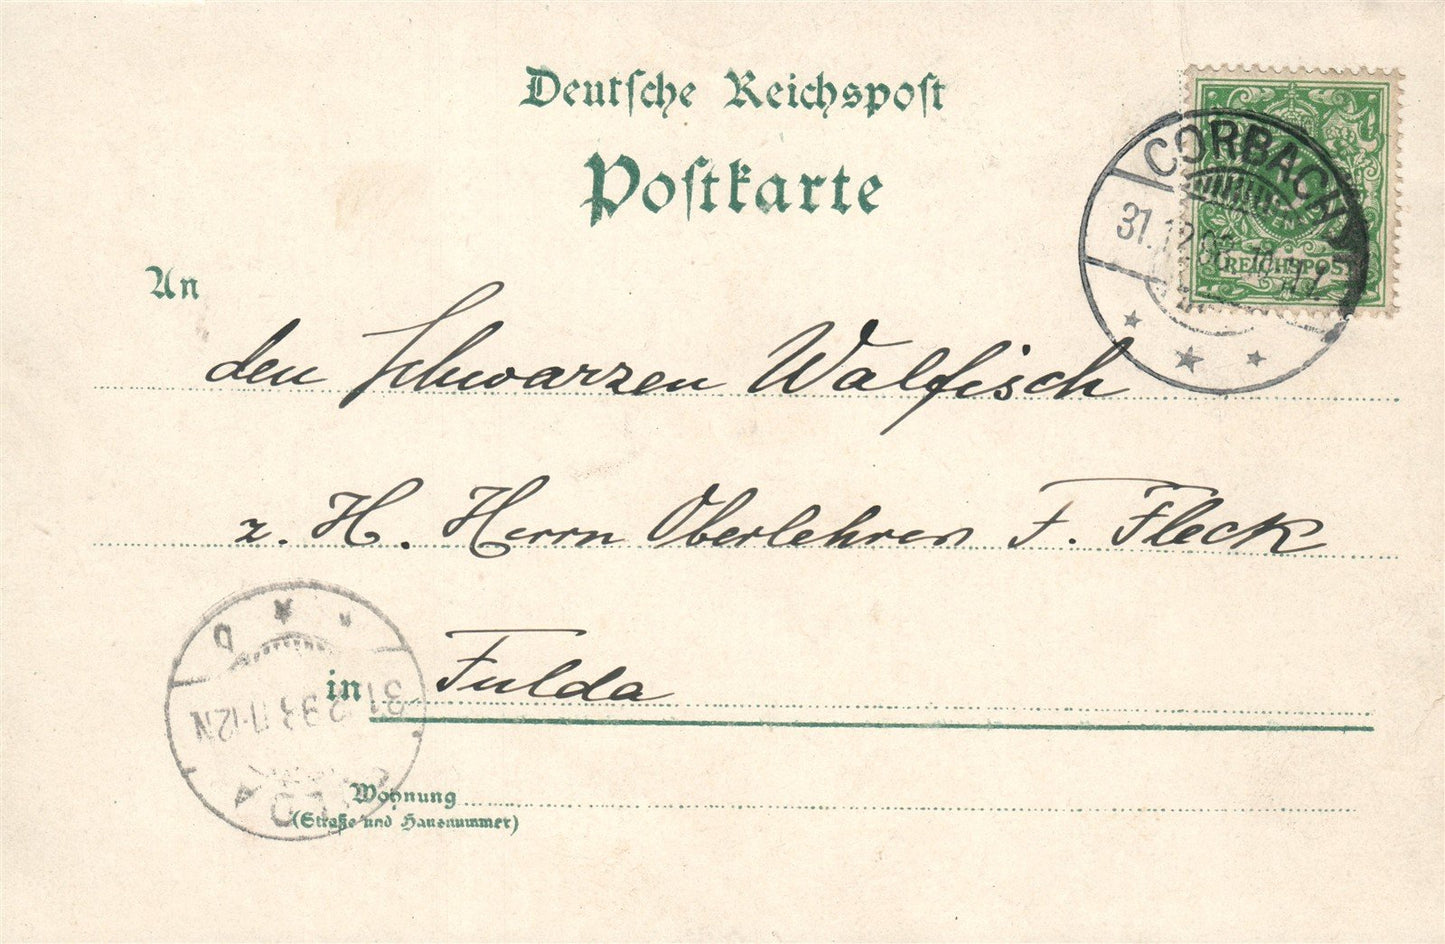 Deutsche Reichspost
Postkarte
CORBACH
31.12.98
REICHSPOST
An
den Schwarzen Walfisch
z. H. Herrn Oberlehrer F. Fleck
in Fulda
31 11-12N
Wohnung
(Straße und Hausnummer)